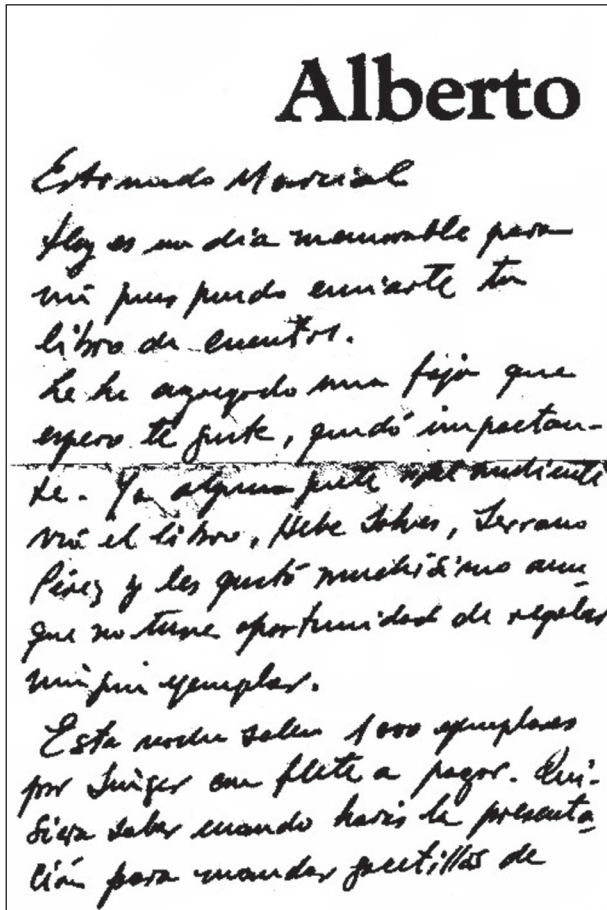 Alberto
Estimado Marcial
Hoy es un día memorable para
mí pues puedo enviarte tu
libro de cuentos.
Le he agregado una faja que
espero te guste, quedó impactan-
te. Ya alguna gente del ambiente
vió el libro, Hebe Solves, Serrano
Pérez y les gustó muchísimo aun
que no tuve oportunidad de regalar
ningún ejemplar.
Esta noche salen 1000 ejemplares
por Singer con flete a pagar. Qui-
siera saber cuando harás la presenta-
ción para mandar gacetillas de